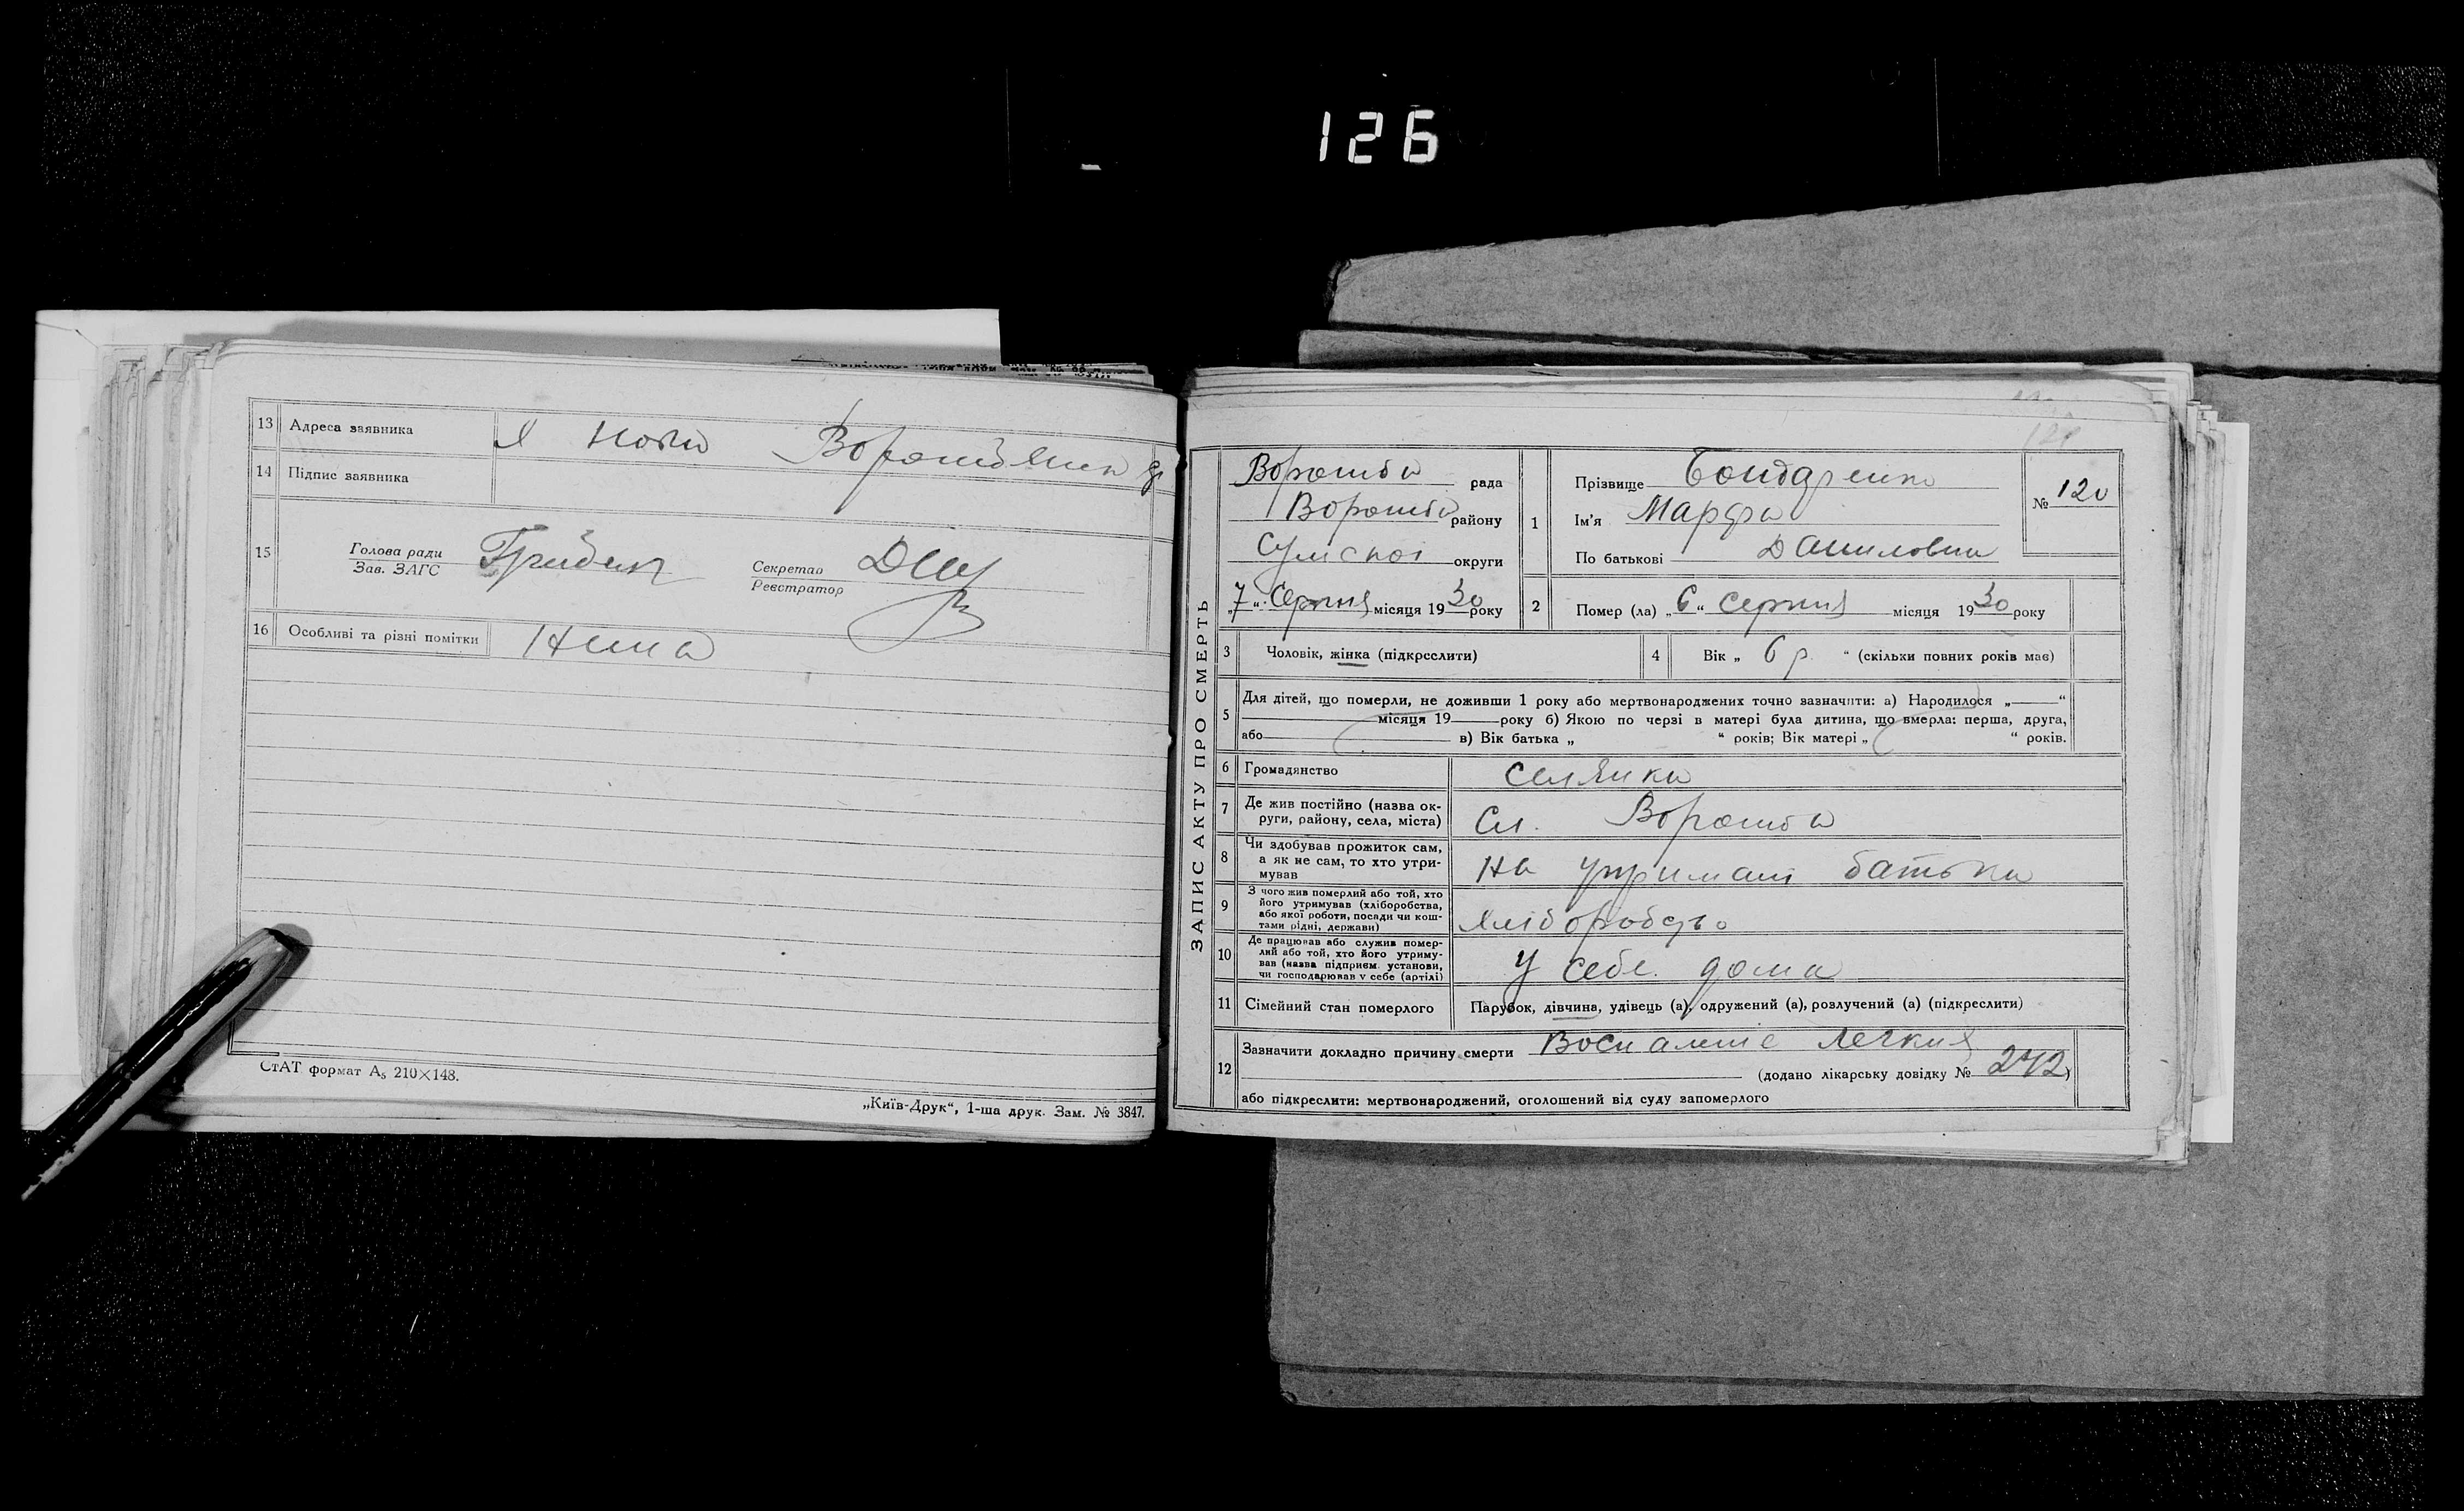 126
13 Адреса заявника
14 Підпис заявника
15 Голова ради
Зав. ЗАГС
Секретар
Реєстратор
16 Особливі та різні помітки Нима
СтАТ формат А5 210×148.
„Київ-Друк“, 1-ша друк. Зам. № 3847.
ЗАПИС АКТУ ПРО СМЕРТЬ
Ворожба рада
Ворожба району
Сумскої округи
„7“ Серпня місяця 1930 року
1 Прізвище Бондаренко
Ім'я Марфа
По батькові Даниловна
№ 120
2 Помер (ла) „6“ серпня місяця 1930 року
3 Чоловік, жінка (підкреслити)
4 Вік „ 6 р. “ (скільки повних років має)
5 Для дітей, що померли, не доживши 1 року або мертвонароджених точно зазначити: а) Народилося „ “
місяця 19 року б) Якою по черзі в матері була дитина, що вмерла: перша, друга,
або в) Вік батька „ “ років; Вік матері „ “ років.
6 Громадянство селянка
7 Де жив постійно (назва ок-
руги, району, села, міста) Сл. Ворожба
8 Чи здобував прожиток сам,
а як не сам, то хто утри-
мував На утримані батька
9 З чого жив померлий або той, хто
його утримував (хліборобства,
або якої роботи, посади чи кош-
тами рідні, держави) Хліборобство
10 Де працював або служив помер-
лий або той, хто його утриму-
вав (назва підприєм. установи,
чи господарював у себе (артілі) У себе дома
11 Сімейний стан померлого Парубок, дівчина, удівець (а), одружений (а), розлучений (а) (підкреслити)
12 Зазначити докладно причину смерти Воспаленіє легких
(додано лікарську довідку № 242)
або підкреслити: мертвонароджений, оголошений від суду запомерлого